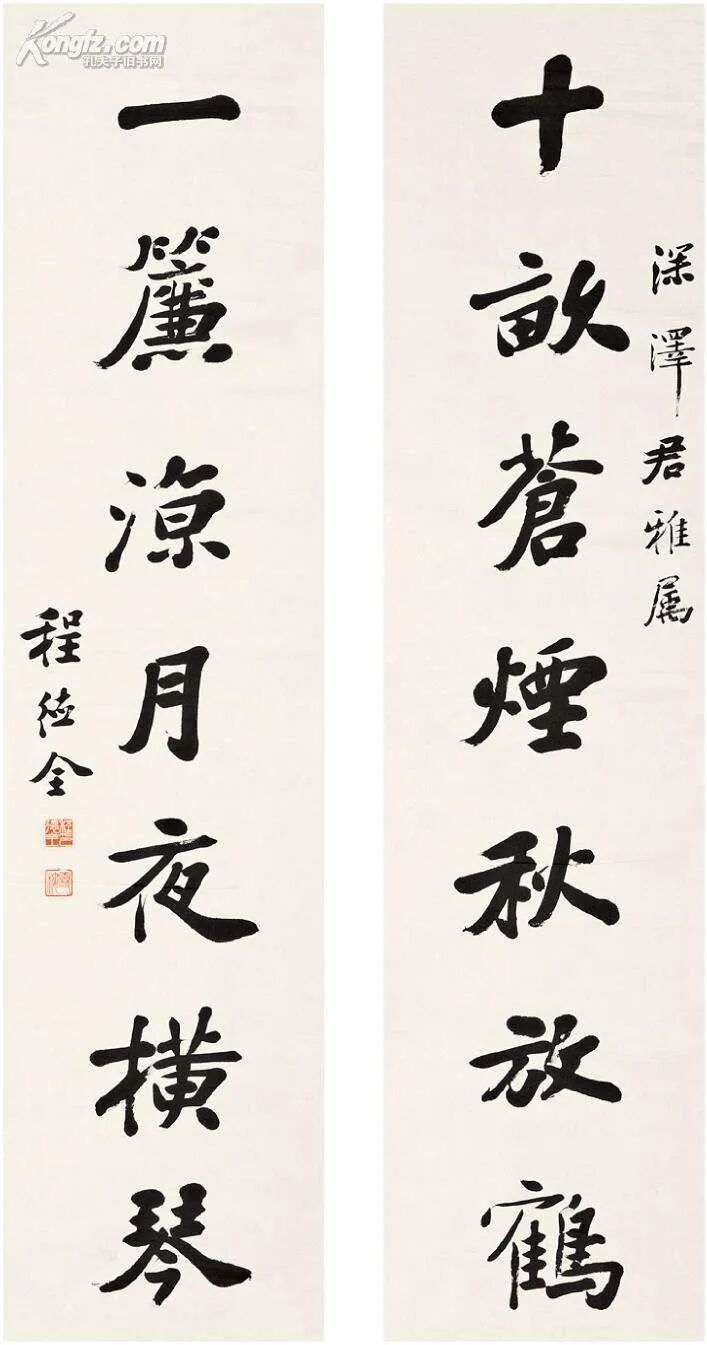 深澤君雅属
十畝蒼煙秋放鶴
一簾涼月夜橫琴
程德全
Kongfz.com
孔夫子旧书网